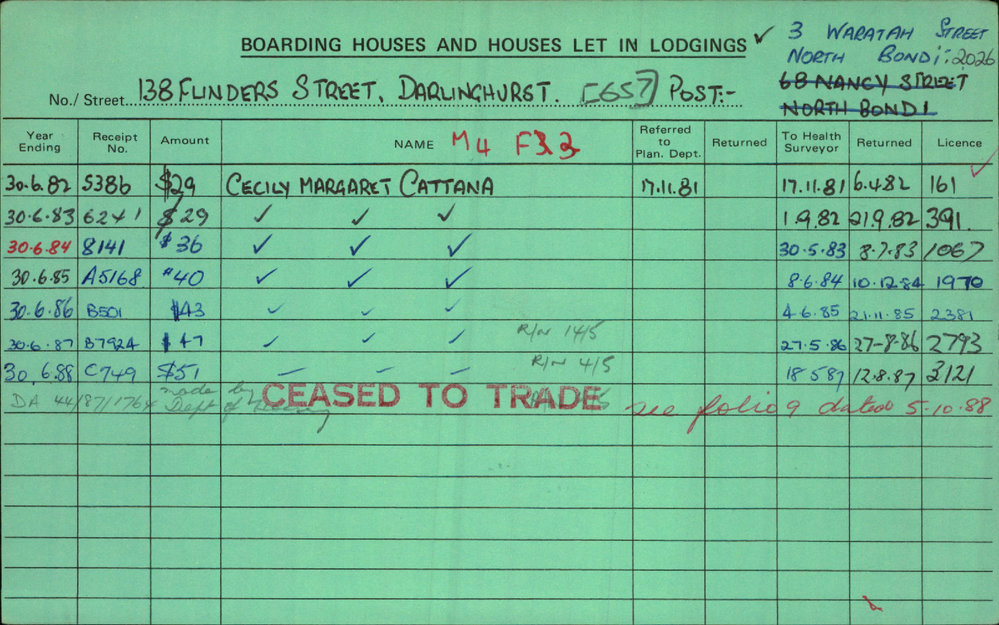 ✓ 3 WARATAH STREET
BOARDING HOUSES AND HOUSES LET IN LODGINGS
NORTH BONDI: 2026
68 NANCY STREET
No./ Street 138 FLINDERS STREET, DARLINGHURST. [657] POST:-
NORTH BONDI
Year Ending Receipt No. Amount NAME M4 F33 Referred to Plan. Dept. Returned To Health Surveyor Returned Licence
30.6.82 5386 $29 CECILY MARGARET CATTANA 17.11.81 17.11.81 6.4.82 161 ✓
30.6.83 6241 $29 ✓ ✓ ✓ 1.9.82 21.9.82 391.
30.6.84 8141 $36 ✓ ✓ ✓ 30.5.83 8.7.83 1067
30.6.85 A5168 $40 ✓ ✓ ✓ 8.6.84 10.12.84 1970
30.6.86 B501 $43 ✓ ✓ ✓ 4.6.85 21.11.85 2381
30.6.87 B7924 $47 ✓ ✓ ✓ R/N 14/5 27.5.86 27-8-86 2793
30.6.88 C749 $51 R/N 4/5 18.5.87 12.8.87 3121
DA 44/87/1764 made by Dept of CEASED TO TRADE see folio 9 dated 5.10.88